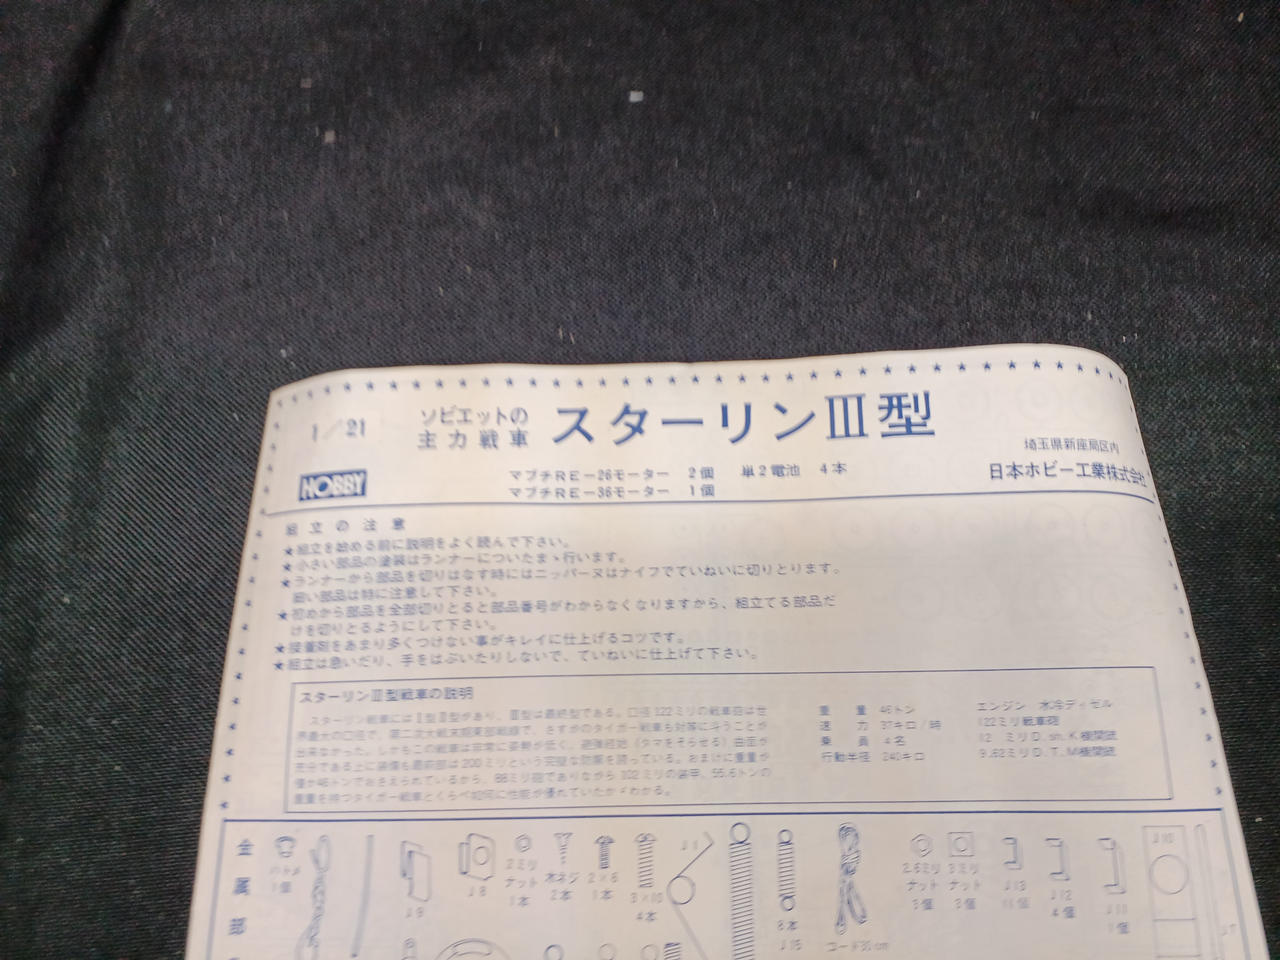 1／21
ソビエットの
主力戦車
スターリンⅢ型
HOBBY
マブチRE－26モーター 2個 単2電池 4本
マブチRE－36モーター 1個
埼玉県新座局区内
日本ホビー工業株式会社
組立の注意
★組立を始める前に説明をよく読んで下さい。
★小さい部品の塗装はランナーについたまゝ行います。
★ランナーから部品を切りはなす時にはニッパーヌはナイフでていねいに切りとります。
細い部品は特に注意して下さい。
★初めから部品を全部切りとると部品番号がわからなくなりますから、組立てる部品だ
けを切りとるようにして下さい。
★接着剤をあまり多くつけない事がキレイに仕上げるコツです。
★組立は急いだり、手をはぶいたりしないで、ていねいに仕上げて下さい。
スターリンⅢ型戦車の説明
スターリン戦車にはⅡ型Ⅲ型があり、Ⅲ型は最終型である。口径122ミリの戦車砲は世
界最大の口径で、第二次大戦末期東部戦線で、さすがのタイガー戦車も対等に斗うことが
出来なかった。しかもこの戦車は非常に姿勢が低く、避弾経始（タマをそらせる）曲面が
充分である上に装備も最前部は200ミリという完璧な防禦を誇っている。おまけに重量が
僅か46トンでおさえられているから、88ミリ砲でありながら102ミリの装甲、55.6トンの
重量を持つタイガー戦車とくらべ如何に性能が優れていたかゞわかる。
重量 46トン
速力 37キロ／時
乗員 4名
行動半径 240キロ
エンジン 水冷ディゼル
122ミリ戦車砲
12 ミリD.sh.K機関銃
9.62ミリD.T.M機関銃
金属部
ハトメ
1個
J9
J8
2ミリ
ナット
1本
木ネジ
2本
2×6
1本
3×10
4本
J1
8本
J15
コード30cm
2.6ミリ
ナット
3個
3ミリ
ナット
3個
J13
J12
4個
J11
1個
J10
J7